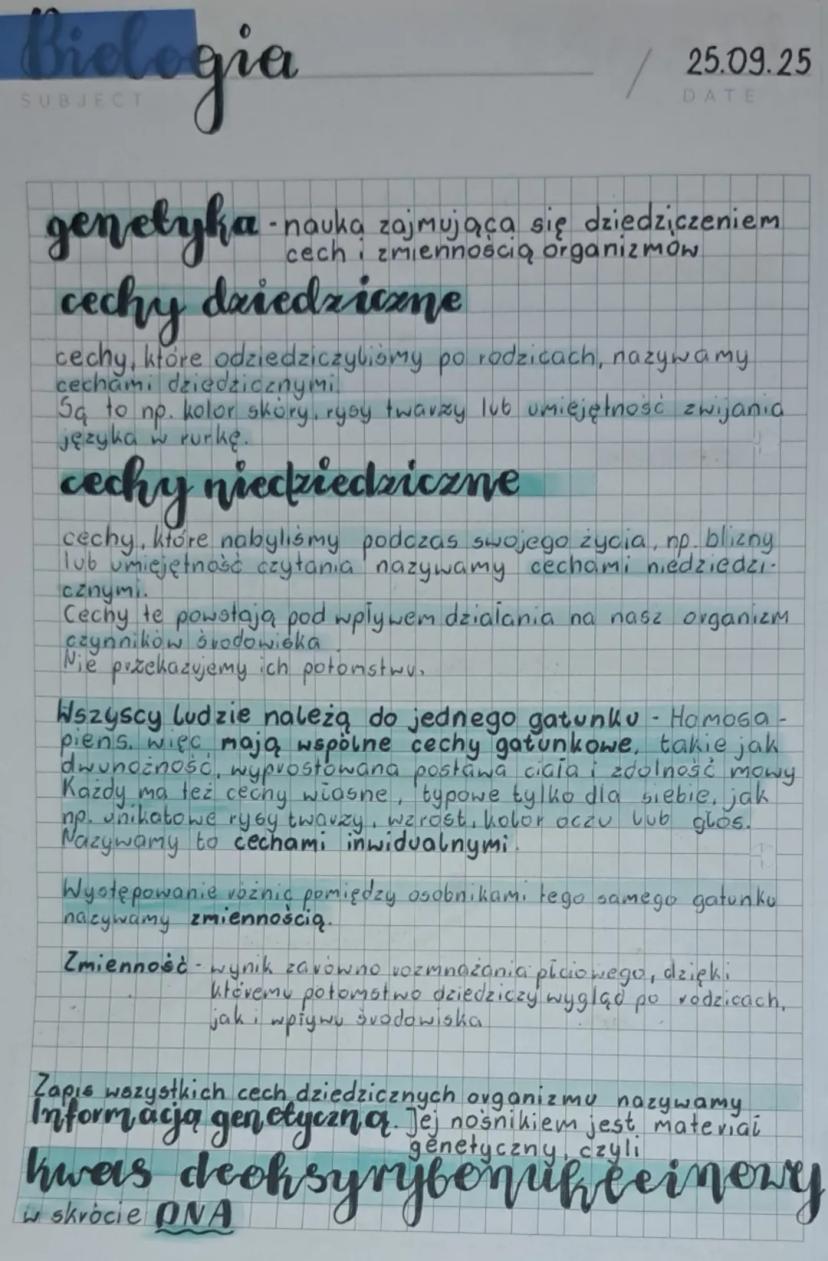 Biologia / 25.09.25
SUBJECT DATE
genetyka - nauka zajmująca się dziedziczeniem
cech i zmiennością organizmów
cechy dziedziczne
cechy, które odziedziczyliśmy po rodzicach, nazywamy
cechami dziedzicznymi
Są to np. kolor skóry, rysy twarzy lub umiejętność zwijania
języka w rurkę.
cechy niedziedziczne
cechy, które nabyliśmy podczas swojego życia, np. blizny
lub umiejętność czytania nazywamy cechami niedziedzi-
cznymi.
Cechy te powstają pod wpływem działania na nasz organizm
czynników środowiska
Nie przekazujemy ich potomstwu.
Wszyscy ludzie należą do jednego gatunku - Homosa-
piens, więc mają wspólne cechy gatunkowe, takie jak
dwunożność, wyprostowana postawa ciała i zdolność mowy
Każdy ma też cechy własne, typowe tylko dla siebie, jak
np. unikatowe rysy twarzy, wzrost, kolor oczu lub głos.
Nazywamy to cechami inwidualnymi.
Występowanie różnic pomiędzy osobnikami tego samego gatunku
nazywamy zmiennością.
Zmienność - wynik zarówno rozmnażania płciowego, dzięki
któremu potomstwo dziedziczy wygląd po rodzicach,
jak i wpływu środowiska
Zapis wszystkich cech dziedzicznych organizmu nazywamy
Informacją genetyczną. Jej nośnikiem jest materiał
genetyczny, czyli
kwas deoksyrybonukleinowy
w skrócie DNA